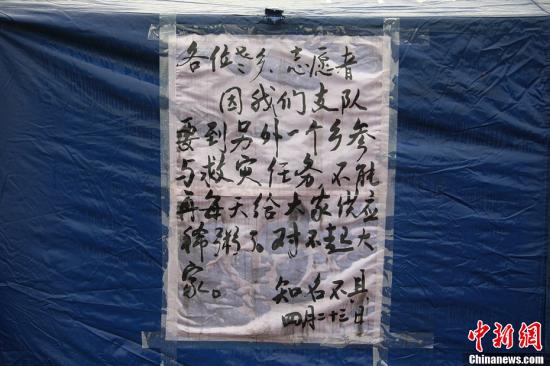 各位老乡、志愿者
因我们支队
要到另外一个乡参
与救灾任务,不能
再每天给大家供应
稀粥了。对不起大
家。
知名不具
四月二十三日
中新网
Chinanews.com